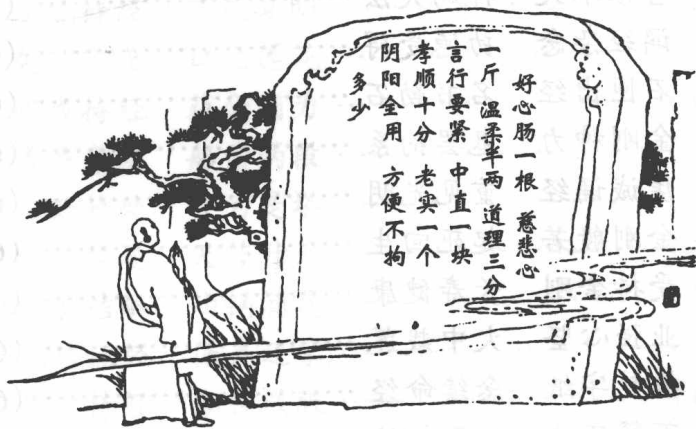 好心肠一根 慈悲心
一斤 温柔半两 道理三分
言行要紧 中直一块
孝顺十分 老实一个
阴阳全用 方便不拘
多少